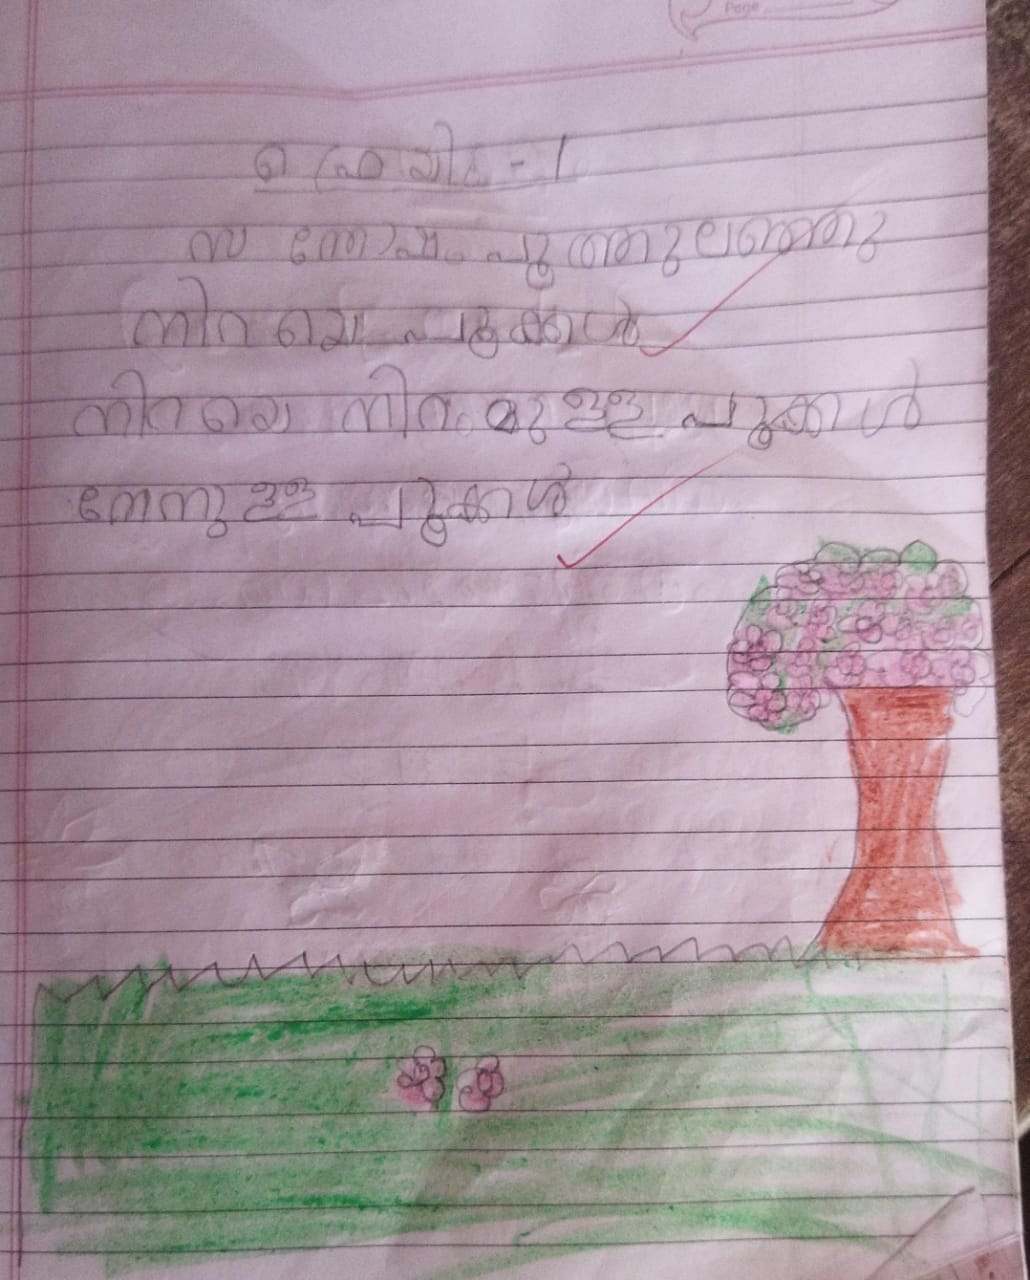 Page
ഫ്രെയിം - 1
സന്തോഷം പൂത്തുലഞ്ഞു
നിറയെ പൂക്കൾ
നിറയെ നിറമുള്ള പൂക്കൾ
തേനുള്ള പൂക്കൾ